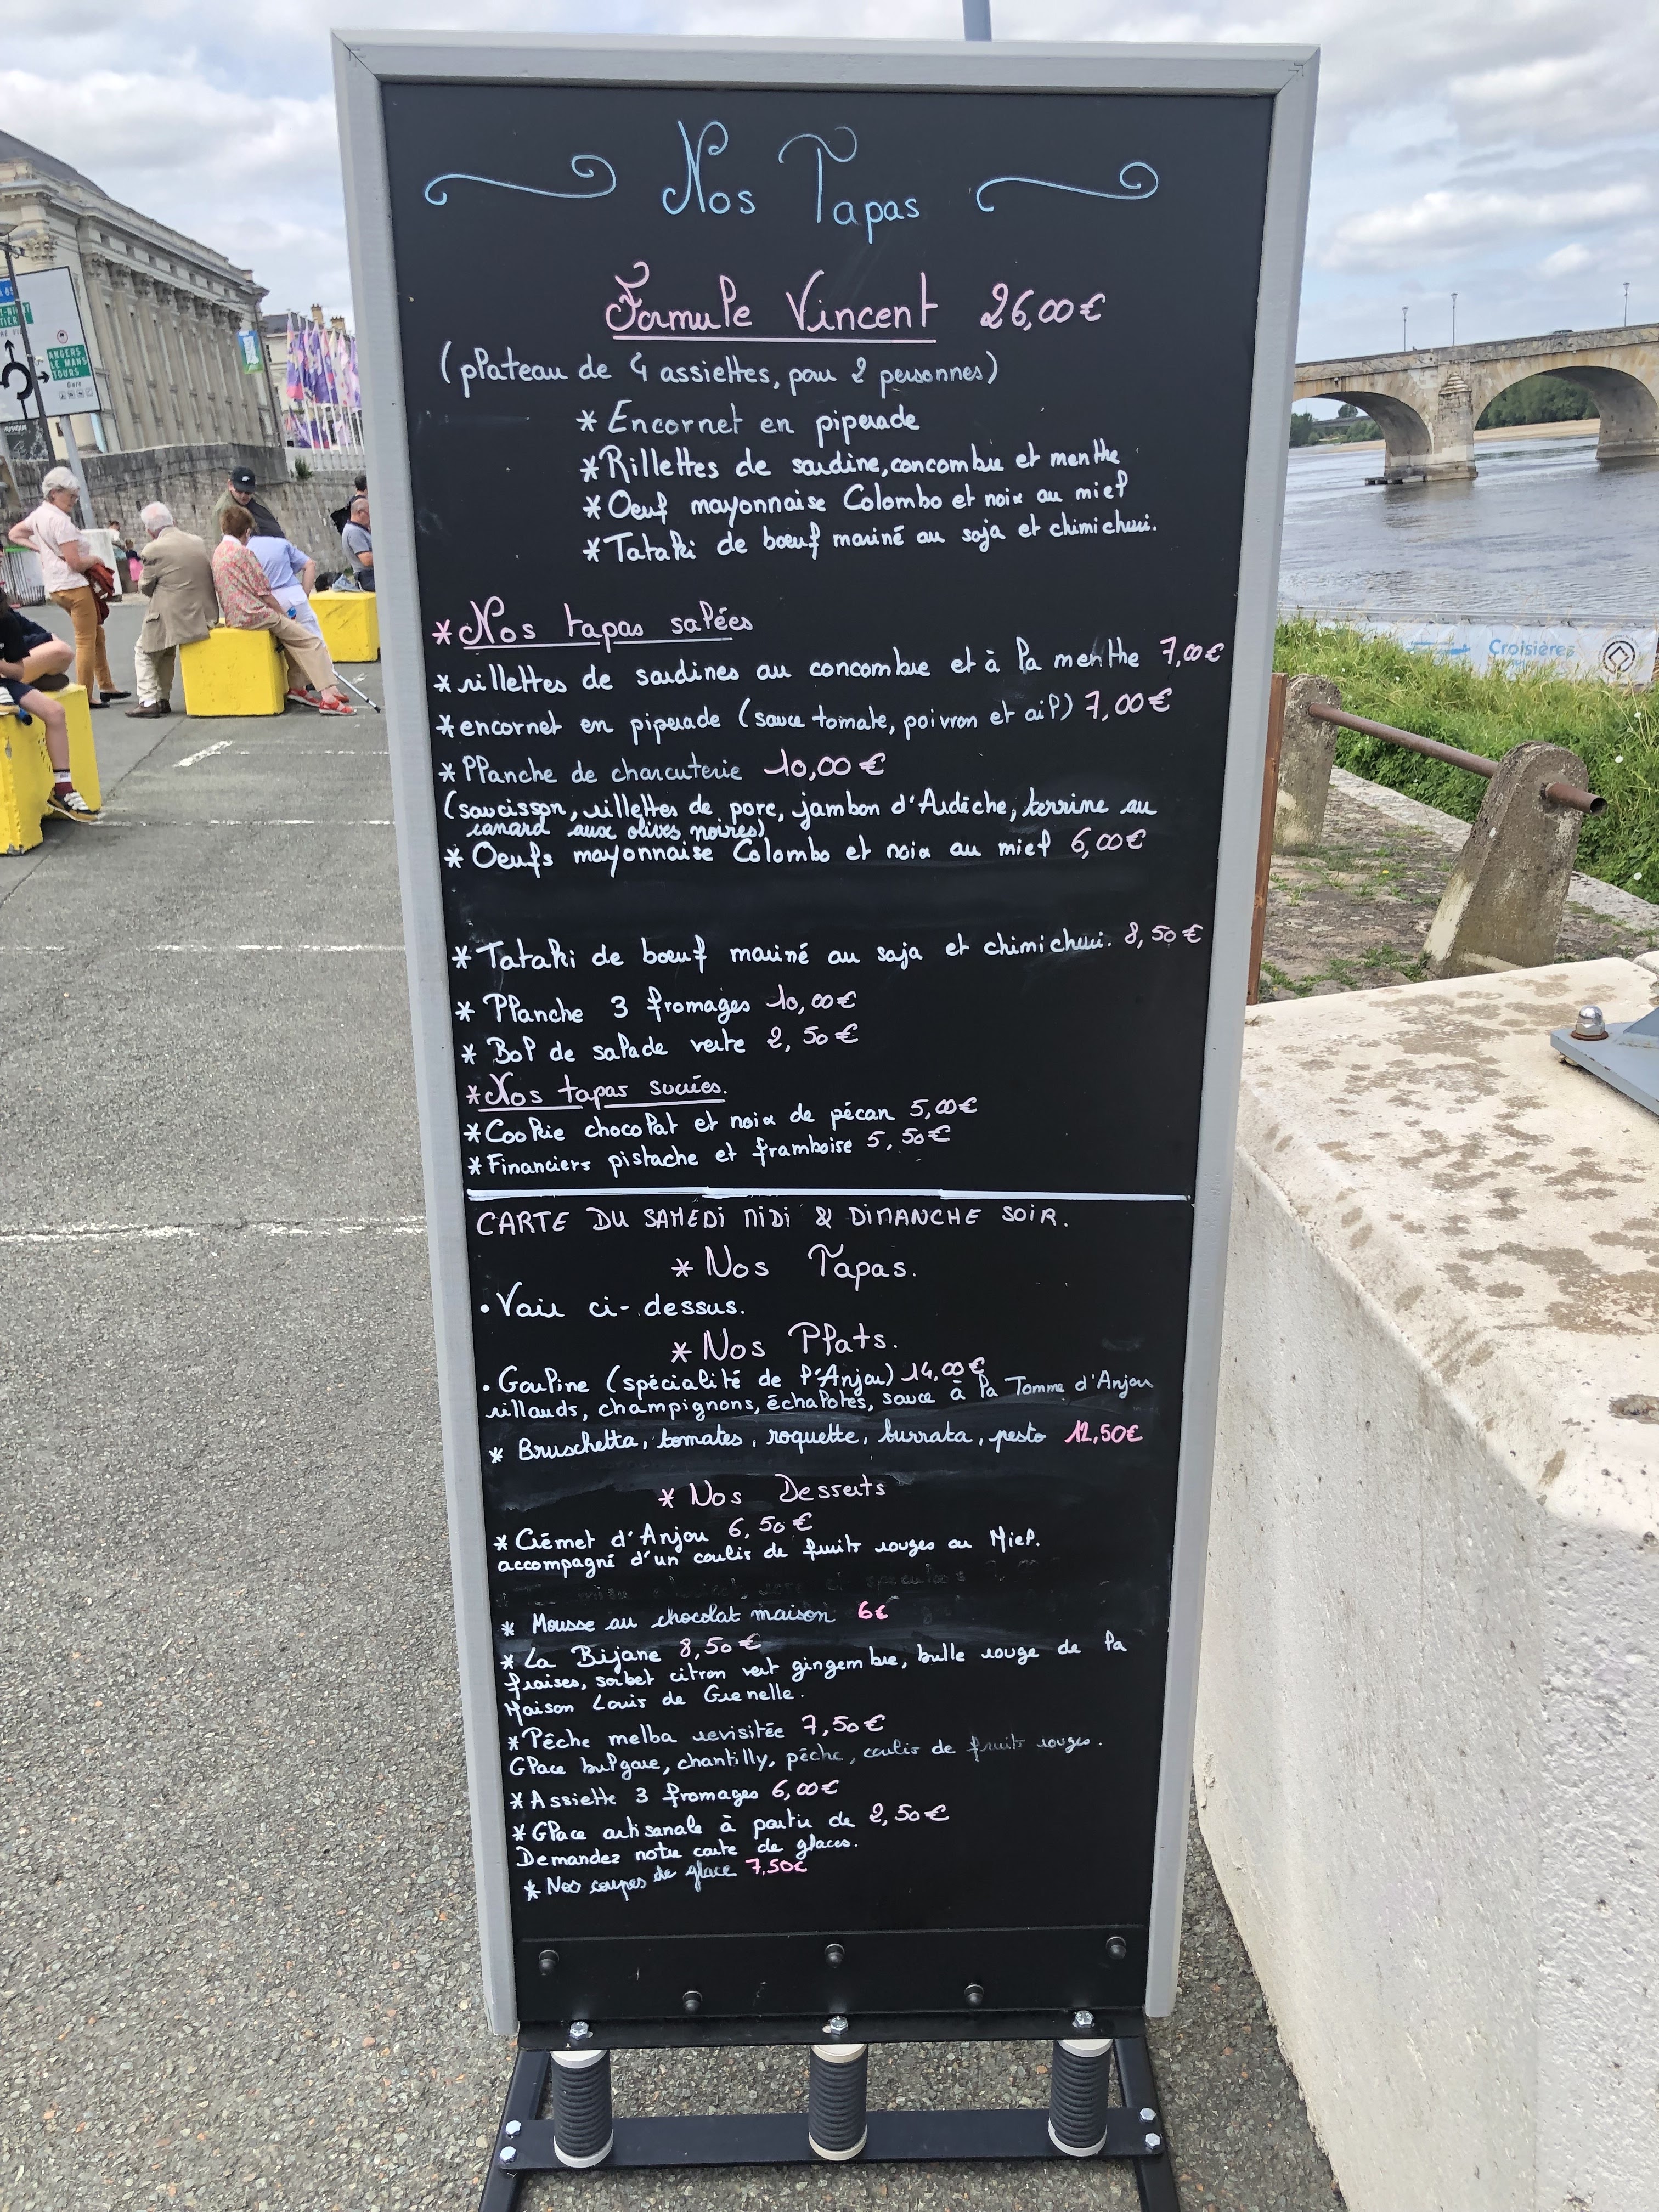 Nos Tapas
Formule Vincent 26,00€
(plateau de 4 assiettes, pour 2 personnes)
* Encornet en piperade
* Rillettes de sardine, concombre et menthe
* Oeuf mayonnaise Colombo et noix au miel
* Tataki de boeuf mariné au soja et chimichuri.
* Nos tapas salées
* rillettes de sardines au concombre et à la menthe 7,00€
* encornet en piperade (sauce tomate, poivron et ail) 7,00€
* Planche de charcuterie 10,00€
(saucisson, rillettes de porc, jambon d'Ardèche, terrine au
canard aux olives noires)
* Oeufs mayonnaise Colombo et noix au miel 6,00€
* Tataki de boeuf mariné au soja et chimichuri. 8,50€
* Planche 3 fromages 10,00€
* Bol de salade verte 2,50€
* Nos tapas sucrées.
* Cookie chocolat et noix de pécan 5,00€
* Financiers pistache et framboise 5,50€
CARTE DU SAMEDI MIDI & DIMANCHE SOIR.
* Nos Tapas.
• Voir ci-dessus.
* Nos Plats.
• Goupine (spécialité de l'Anjou) 14,00€
rillauds, champignons, échalotes, sauce à la Tomme d'Anjou
* Bruschetta, tomates, roquette, burrata, pesto 12,50€
* Nos Desserts
* Crémet d'Anjou 6,50€
accompagné d'un coulis de fruits rouges ou Miel.
* Mousse au chocolat maison 6€
* La Bijane 8,50€
fraises, sorbet citron vert gingembre, bulle rouge de la
Maison Louis de Grenelle.
* Pêche melba revisitée 7,50€
Glace bulgare, chantilly, pêche, coulis de fruits rouges.
* Assiette 3 fromages 6,00€
* Glace artisanale à partir de 2,50€
Demandez notre carte de glaces.
* Nos coupes de glace 7,50€
ANGERS
LE MANS
TOURS
Gare
Croisières